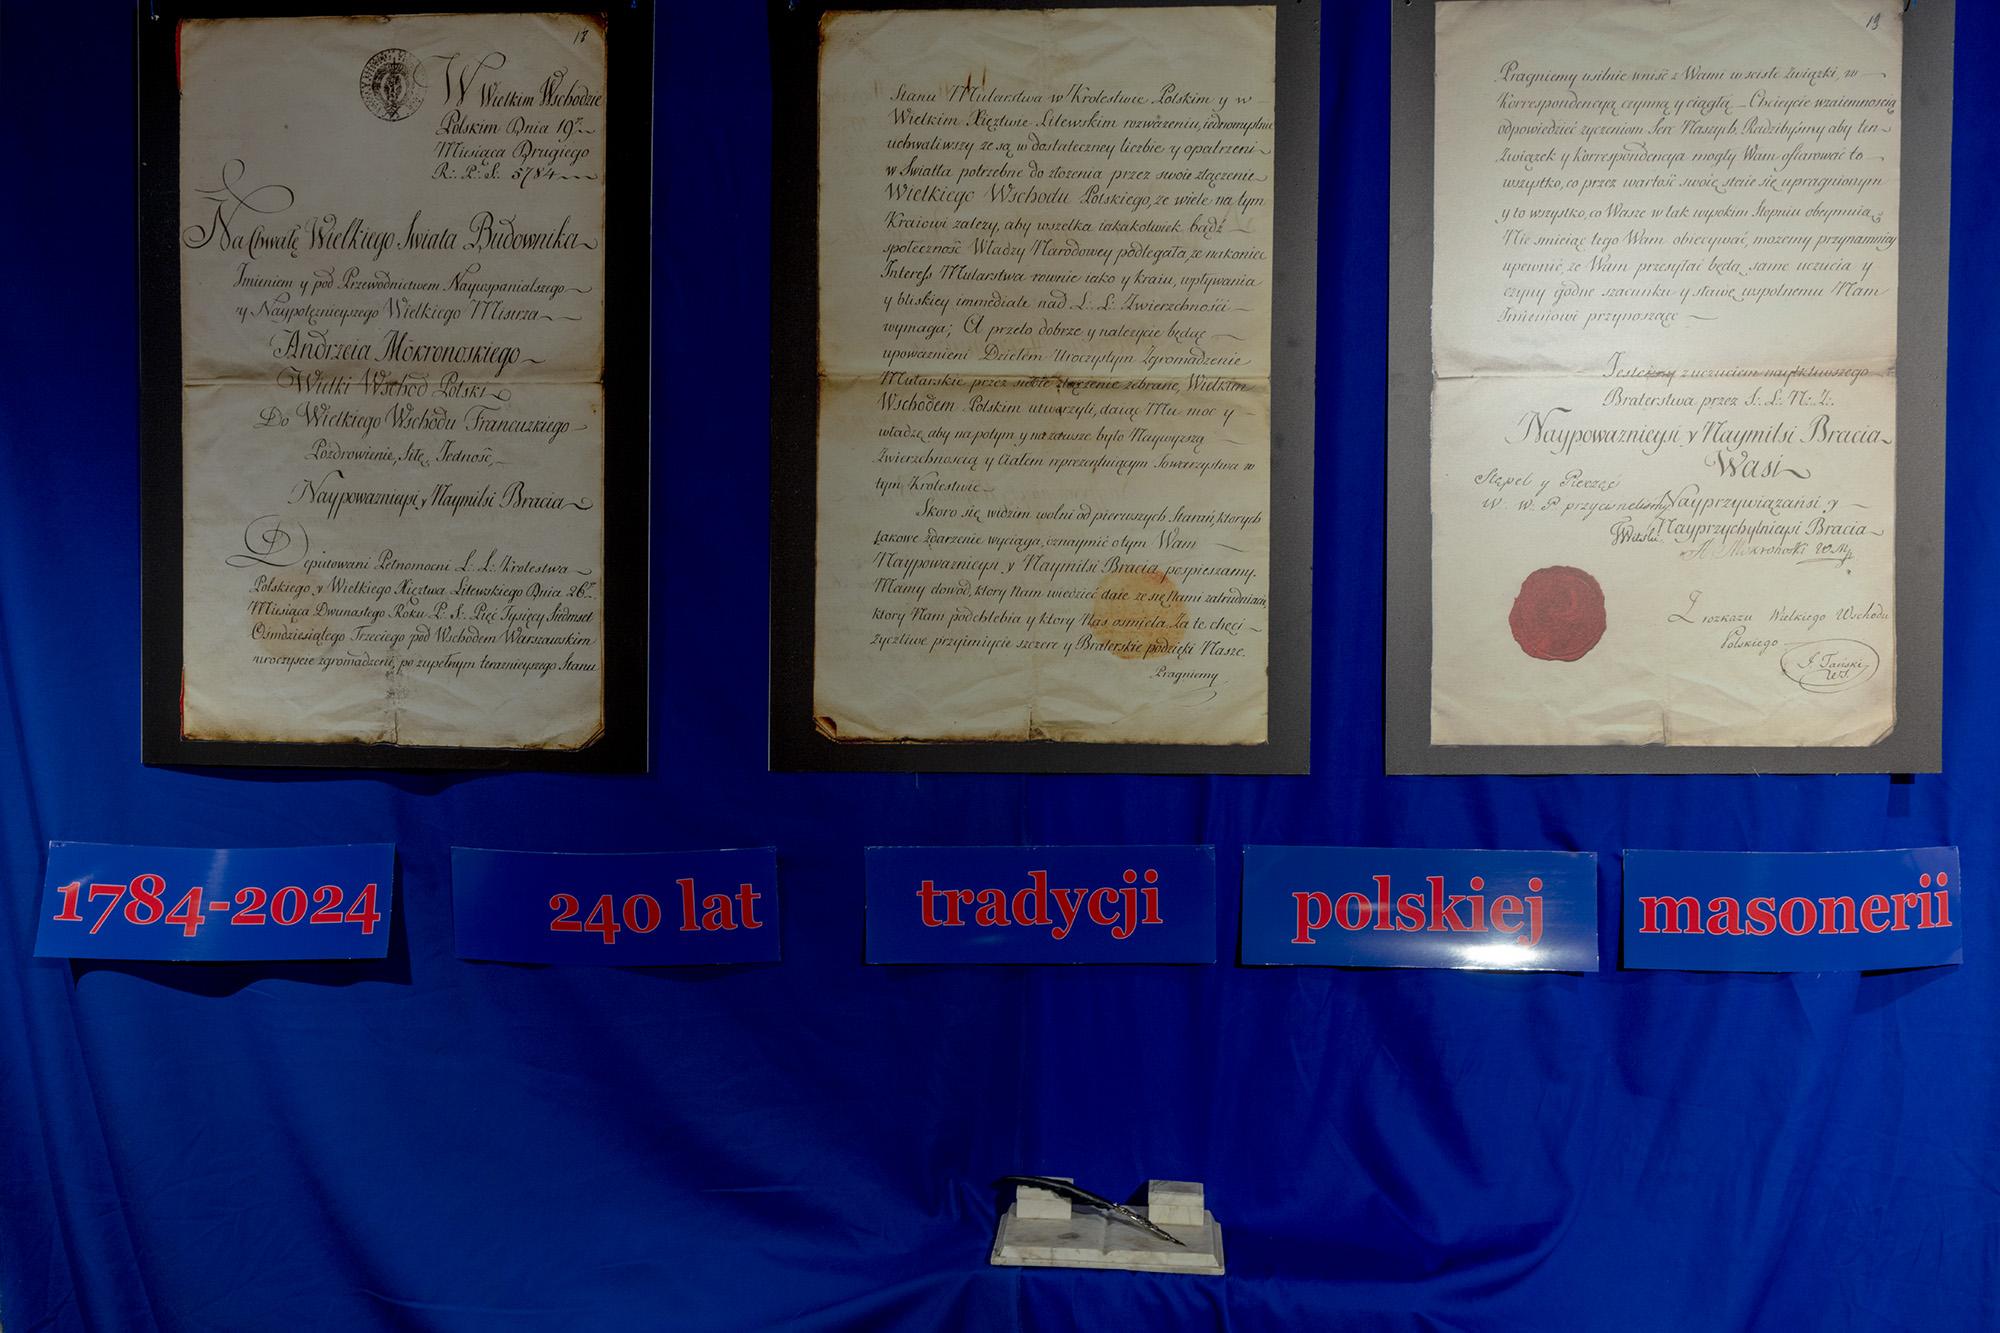 13
W Wielkim Wschodzie
Polskim Dnia 19.
Miesiąca Drugiego
R.: P.: S.: 5784
Na Chwałę Wielkiego Świata Budownika
Imieniem y pod Przewodnictwem Nayuspanialszego
y Naypotęznieyszego Wielkiego Mistrza
Andrzeia Mokronoskiego
Wielki Wschod Polski
Do Wielkiego Wschodu Francuzkiego
Pozdrowienie, Siłę, Jedność,
Naypowaznieysi y Naymilsi Bracia
Deputowani Pełnomocni L.: L.: Krolestwa
Polskiego y Wielkiego Xięztwa Litewskiego Dnia 26.
Miesiąca Dwunastego Roku P.: S.: Pięć Tysięcy Siedmset
Ośmdziesiątego Trzeciego pod Wschodem Warszawskim
uroczyście zgromadzeni, po zupełnym teraznieyszego Stanu
Stanu Mularstwa w Krolestwie Polskim y w
Wielkim Xięztwie Litewskim rozwazeniu, iednomyslnie
uchwaliwszy ze są w dostateczney liczbie y opatrzeni
w Swiatła potrzebne do złozenia przez swoie złączenie
Wielkiego Wschodu Polskiego, ze wiele na tym
Kraiowi zalezy, aby wszelka iakakolwiek bądz
społeczność Władzy Narodowey podlegała, ze nakoniec
Interess Mularstwa rownie iako y kraiu, wpływania
y bliskiey immediate nad L.: L.: Zwierzchności
wymaga; A przeto dobrze y nalezycie będąc
upowaznieni Dziełem Uroczystym Zgromadzenie
Mularskie przez swoie złączenie zebrane, Wielkim
Wschodem Polskim utworzyli, daiąc Mu moc y
władzę aby na potym y na zawsze było Naywyzszą
Zwierzchnością y Ciałem reprezentuiącym Towarzystwa w
tym Krolestwie
Skoro się widzim wolni od pierwszych Starań, ktorych
takowe zdarzenie wyciąga, oznaymić o tym Wam
Naypowaznieysi y Naymilsi Bracia pospieszamy.
Mamy dowod, ktory Nam wiedzieć daie ze się Nami zatrudniacie,
ktory Nam podchlebia y ktory Nas osmiela. Za te chęci
zyczliwe przyimiycie szczere y Braterskie podzięki Nasze.
Pragniemy
13
Pragniemy usilnie wniść z Wami w scisłe Związki, w
Korrespondencyą czynną y ciągłą. Chcieycie wzaiemnością
odpowiedzieć zyczeniom Serc Naszych. Radzibyśmy aby ten
Związek y Korrespondencya mogły Wam ofiarować to
wszystko, co przez wartość swoię staie się upragnionym
y to wszystko, co Wasze w tak wysokim Stopniu obeymuią
Nie smieiąc tego Wam obiecywać, mozemy przynaymniey
upewnić, ze Wam przesyłać będą same uczucia y
czyny godne szacunku y sławę wspolnemu Nam
Imieniowi przynoszące
Jestesmy z uczuciem naytkliwszego
Braterstwa przez S.: L.: N.: Z.:
Naypowaznieysi y Naymilsi Bracia
Wasi
Stępel y Pieczęć
W. W. P. przycisnelismy
Nayprzywiązańsi y
Nayprzychylnieysi Bracia
A Mokronoski W M
Z rozkazu Wielkiego Wschodu
Polskiego
J. Tański
1784-2024
240 lat
tradycji
polskiej
masonerii